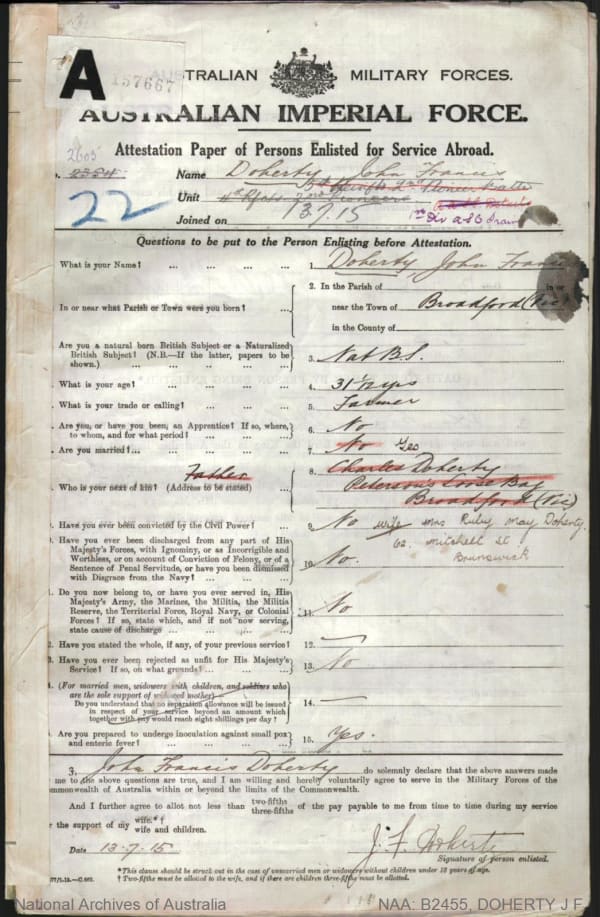 A
157667
AUSTRALIAN MILITARY FORCES.
AUSTRALIAN IMPERIAL FORCE.
Attestation Paper of Persons Enlisted for Service Abroad.
2605
o. 2354 Name Doherty John Francis
22
Unit 2nd Pioneers
1st Div ASC Train
Joined on 13.7.15
Questions to be put to the Person Enlisting before Attestation.
What is your Name? ... ... ... ... 1. Doherty, John Francis
2. In the Parish of in or
In or near what Parish or Town were you born? ... near the Town of Broadford (Vic)
in the County of
Are you a natural born British Subject or a Naturalized
British Subject? (N.B.—If the latter, papers to be
shown.) ... ... ... ... 3. Nat B.S.
What is your age? ... ... ... ... 4. 31 1/12 yrs
What is your trade or calling? ... ... ... 5. Farmer
Are you, or have you been, an Apprentice? If so, where,
to whom, and for what period? ... ... ... 6. No
Are you married? ... ... ... ... 7. No Yes
Father
Who is your next of kin? (Address to be stated) ... 8. Charles Doherty
Broadford (Vic)
Have you ever been convicted by the Civil Power? ... 9. No wife Mrs Ruby May Doherty.
62 Mitchell St
Brunswick
Have you ever been discharged from any part of His
Majesty's Forces, with Ignominy, or as Incorrigible and
Worthless, or on account of Conviction of Felony, or of a
Sentence of Penal Servitude, or have you been dismissed
with Disgrace from the Navy? ... ... 10. No.
Do you now belong to, or have you ever served in, His
Majesty's Army, the Marines, the Militia, the Militia
Reserve, the Territorial Force, Royal Navy, or Colonial
Forces? If so, state which, and if not now serving,
state cause of discharge ... ... ... 11. No
2. Have you stated the whole, if any, of your previous service? 12. —
3. Have you ever been rejected as unfit for His Majesty's
Service? If so, on what grounds? ... ... 13. No
4. (For married men, widowers with children, and soldiers who
are the sole support of widowed mother)—
Do you understand that no separation allowance will be issued
in respect of your service beyond an amount which
together with pay would reach eight shillings per day? 14. —
5. Are you prepared to undergo inoculation against small pox
and enteric fever? ... ... ... ... 15. Yes.
I, John Francis Doherty do solemnly declare that the above answers made
me to the above questions are true, and I am willing and hereby voluntarily agree to serve in the Military Forces of the
mmonwealth of Australia within or beyond the limits of the Commonwealth.
And I further agree to allot not less than two-fifths three-fifths of the pay payable to me from time to time during my service
r the support of my wife.*† wife and children.
Date 13-7-15 J. F. Doherty
Signature of person enlisted.
*This clause should be struck out in the case of unmarried men or widowers without children under 18 years of age.
† Two-fifths must be allotted to the wife, and if there are children three-fifths must be allotted.
National Archives of Australia NAA: B2455, DOHERTY J F